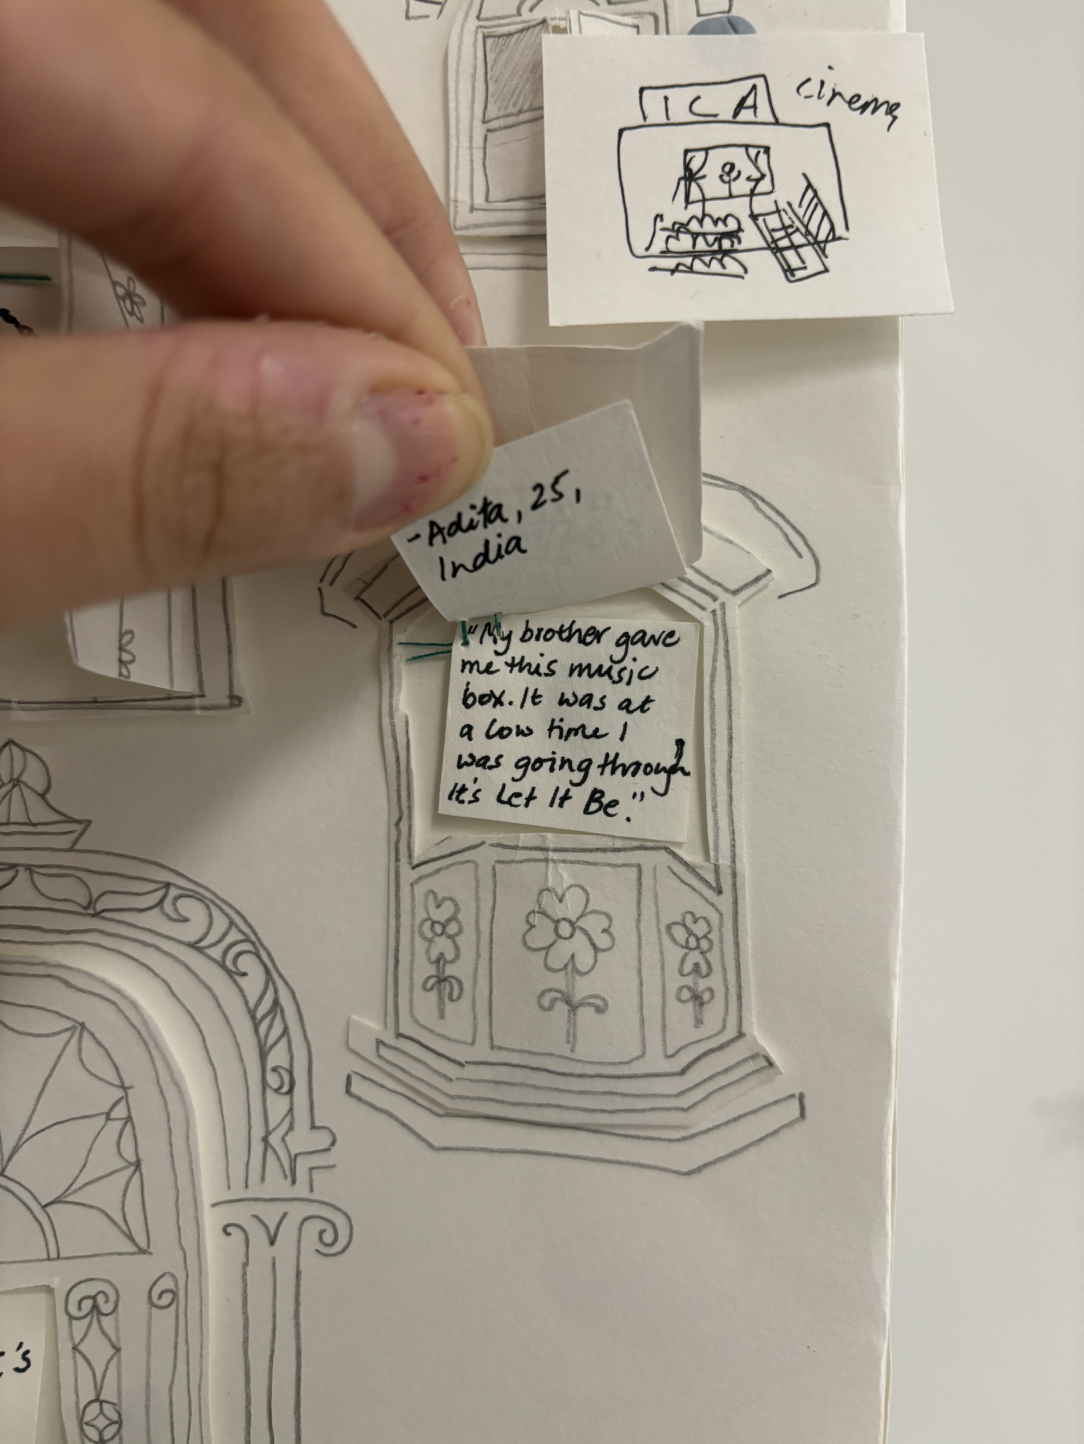 ICA
cinema
-Adita, 25,
India
"My brother gave
me this music
box. It was at
a low time I
was going through
It's Let It Be."
t's